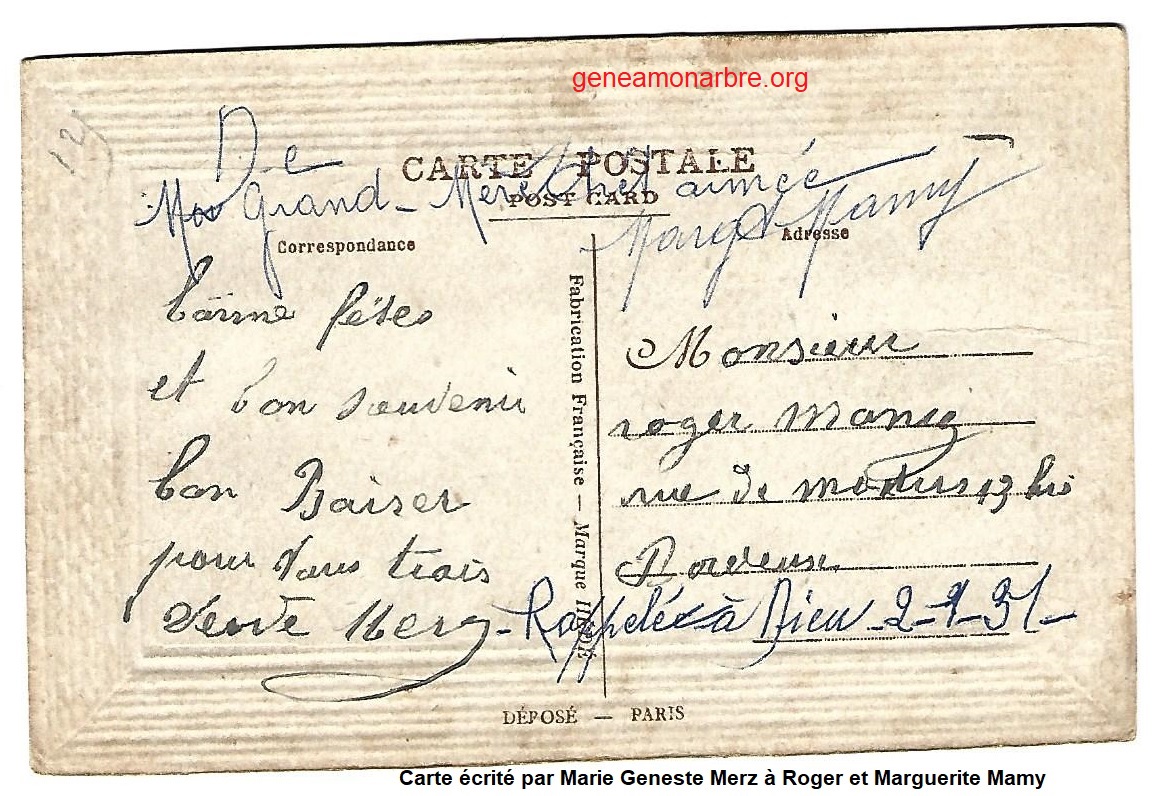 geneamonarbre.org
De
CARTE POSTALE
Ma Grand-Mère très aimée
POST CARD
Marg Mamy
Correspondance
Adresse
bonne fêtes
et bon souvenir
bon Baiser
pour vous trois
Veuve Merz
Fabrication Française — Marque
Monsieur
roger Mamy
rue de 13 bis
Bordeaux
- Rappelée à Dieu 2-1-51-
DÉPOSÉ — PARIS
Carte écrité par Marie Geneste Merz à Roger et Marguerite Mamy